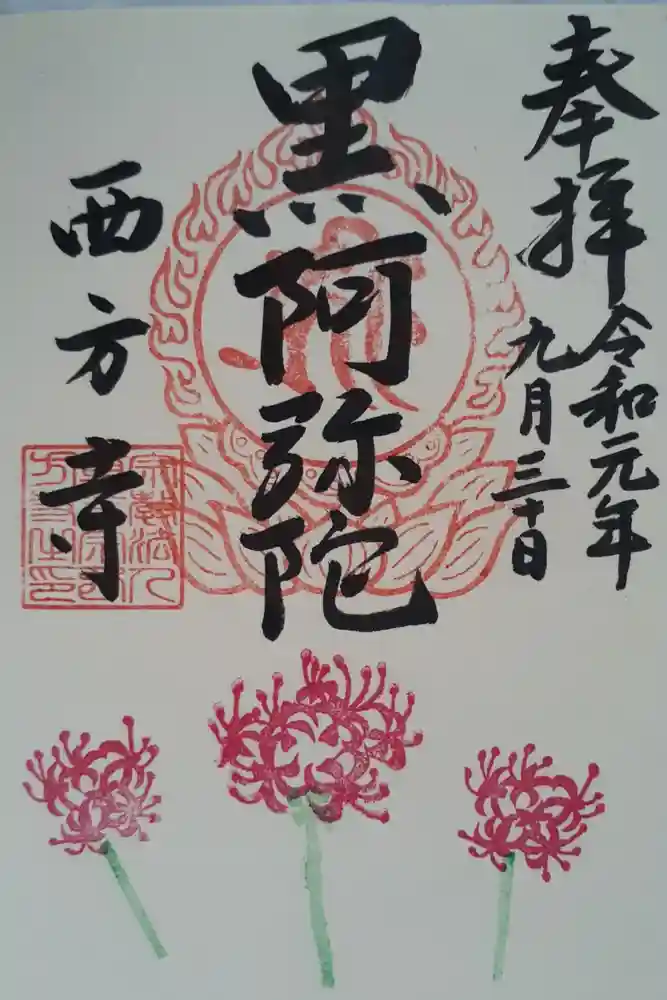 奉拝
令和元年
九月三十日
黒阿弥陀
西方寺